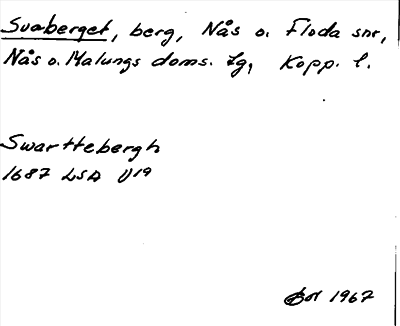 Svaberget, berg, Nås o. Floda snr,
Nås o. Malungs doms. lg, Kopp. l.
Swarttebergh
1687 LSA U19
1967